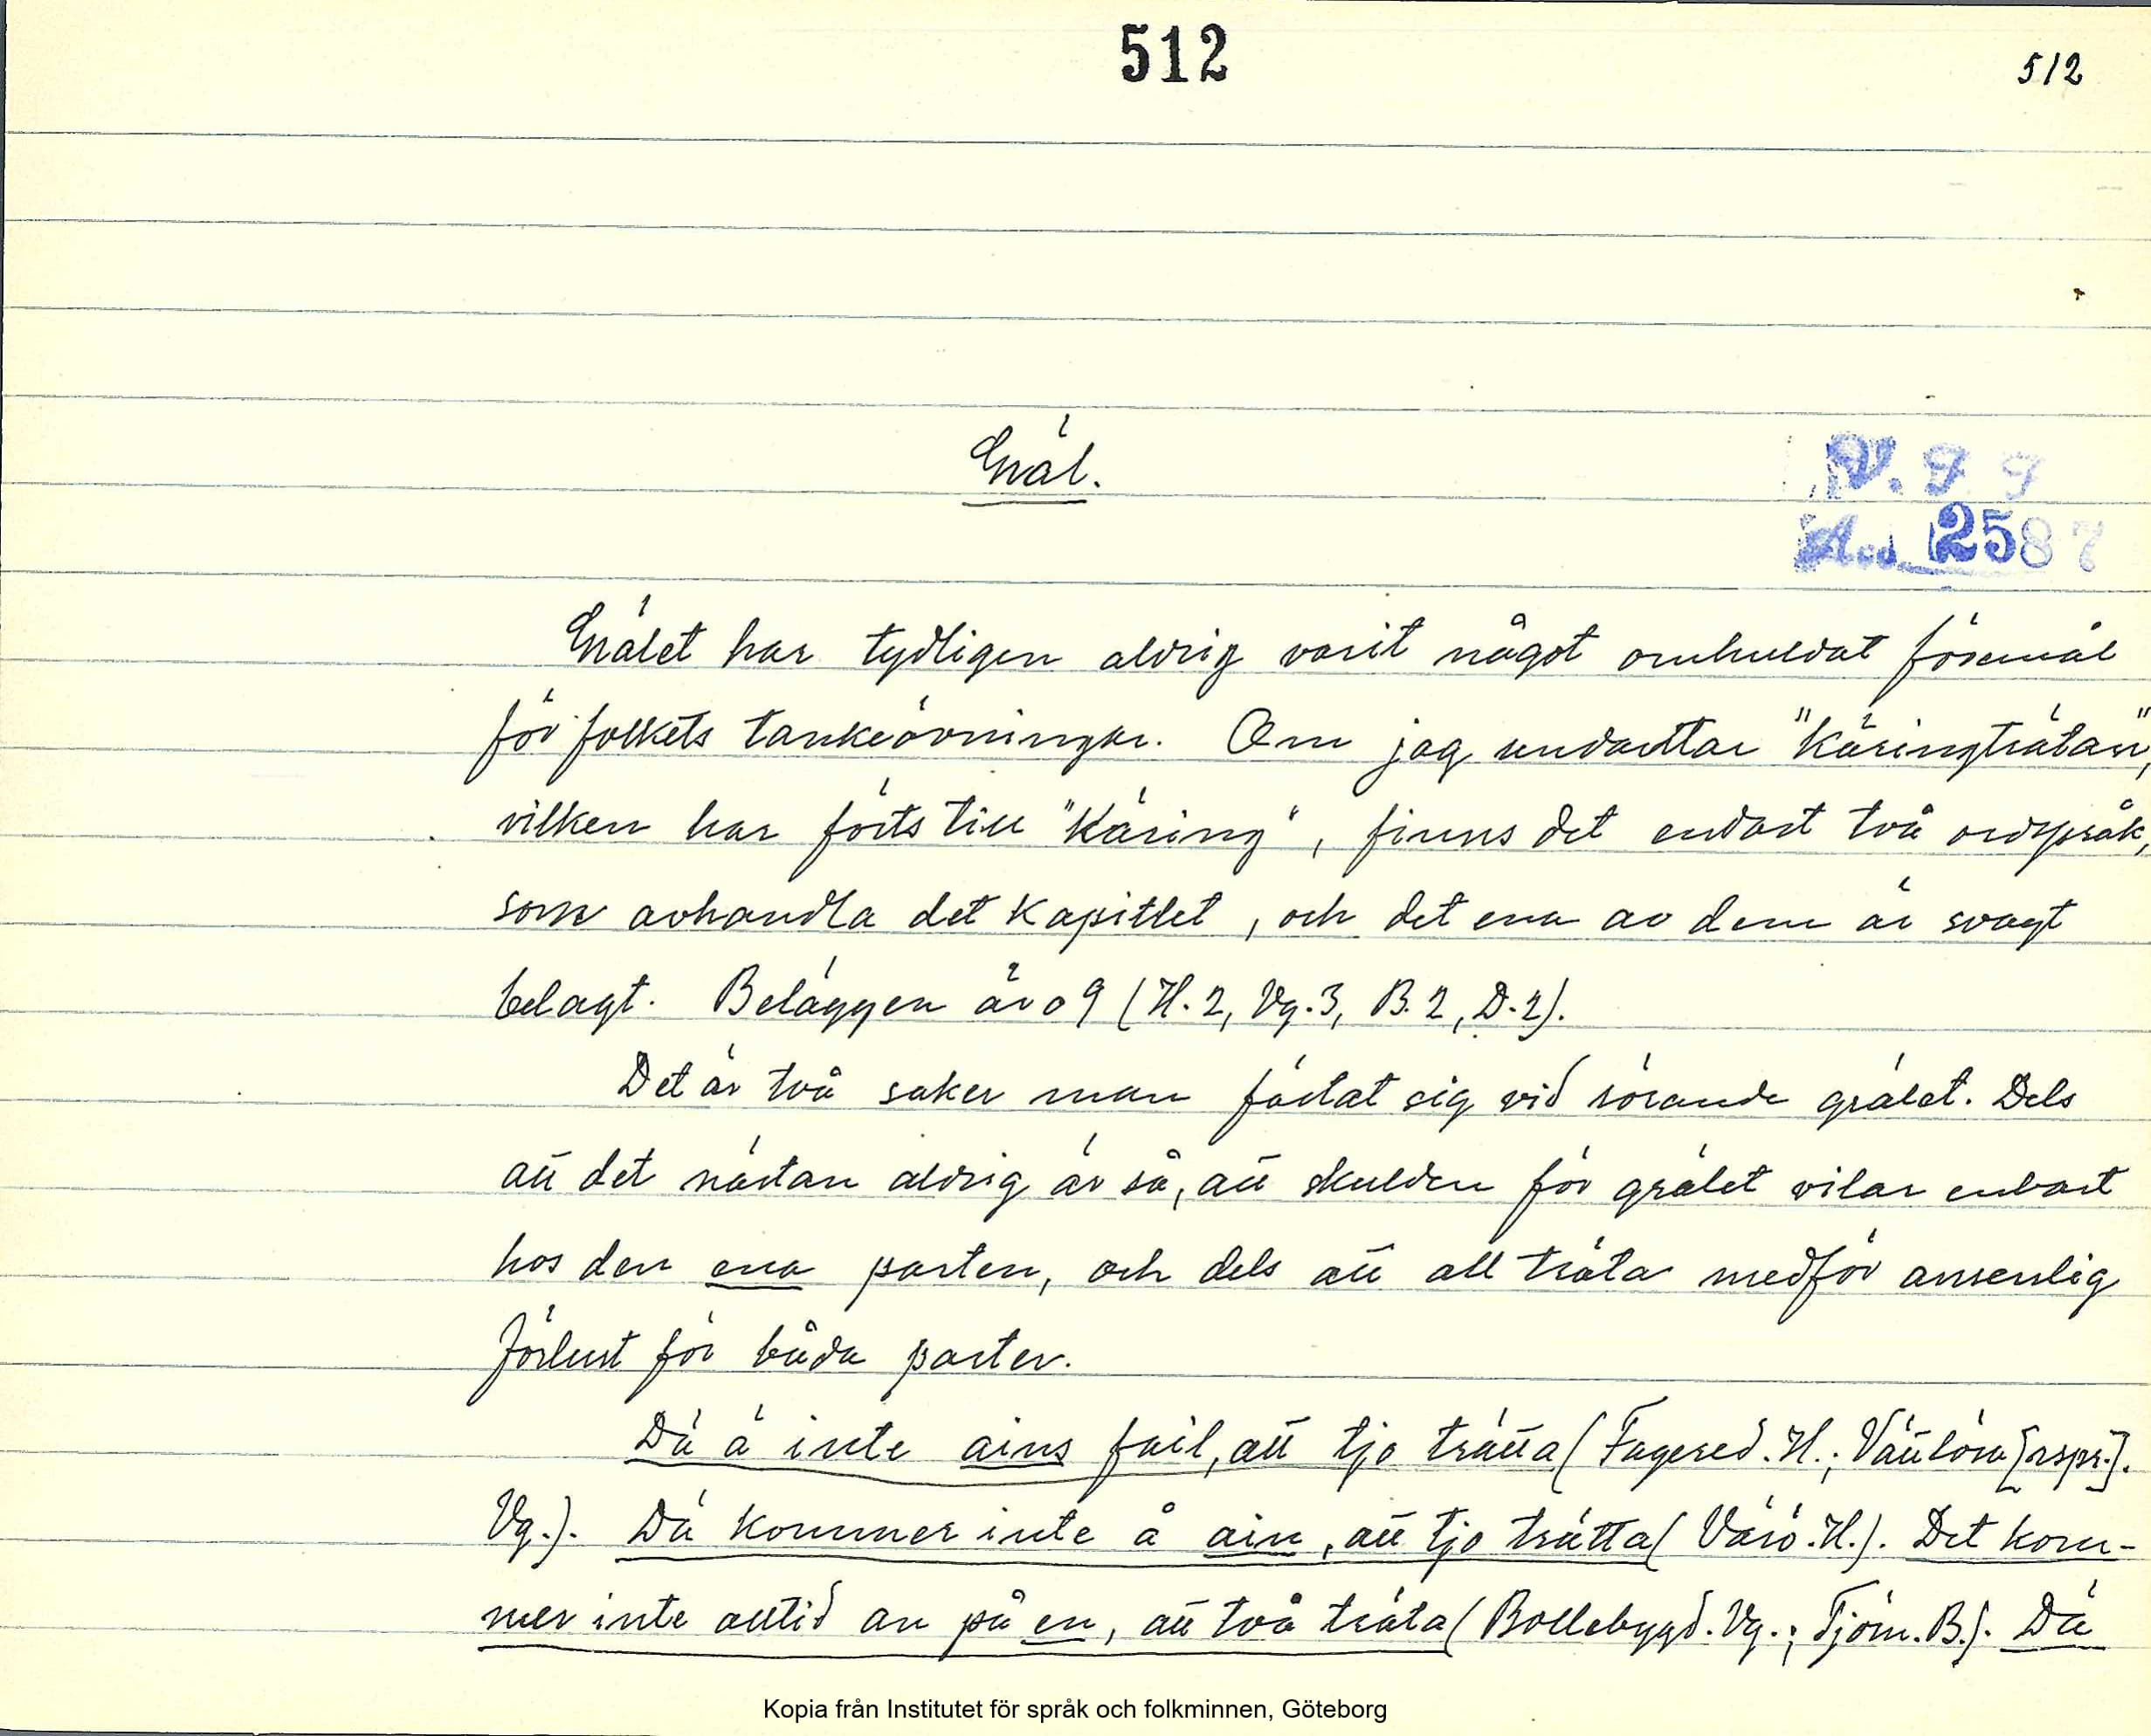 512
512
Gräl.
V. G. F.
Acc. 2587
Grälet har tydligen aldrig varit något omhuldat föremål
för folkets tankeövningar. Om jag undantar "Käringträtan",
vilken har förts till "Käring", finns det endast två ordspråk,
som avhandla det kapitlet, och det ena av dem är svagt
belagt. Beläggen äro 9 (H. 2, Vg. 3, B. 2, D. 2).
Det är två saker man fästat sig vid rörande grälet. Dels
att det nästan aldrig är så, att skulden för grälet vilar enbart
hos den ena parten, och dels att all träta medför ansenlig
förlust för båda parter.
Dä ä inte ains fail, att tjo trätta (Fagered. H.; Vättlösa [rspr.].
Vg.). Dä kommer inte å ain, att tjo trätta (Värö. H.). Det kom-
mer inte alltid an på en, att två träta (Bollebygd. Vg.; Tjörn. B.). Dä
Kopia från Institutet för språk och folkminnen, Göteborg